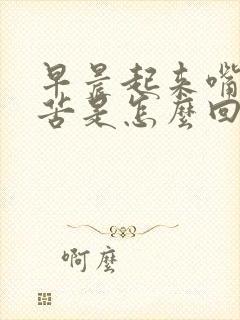 早晨起来嘴
苦是怎麽回
啊麽